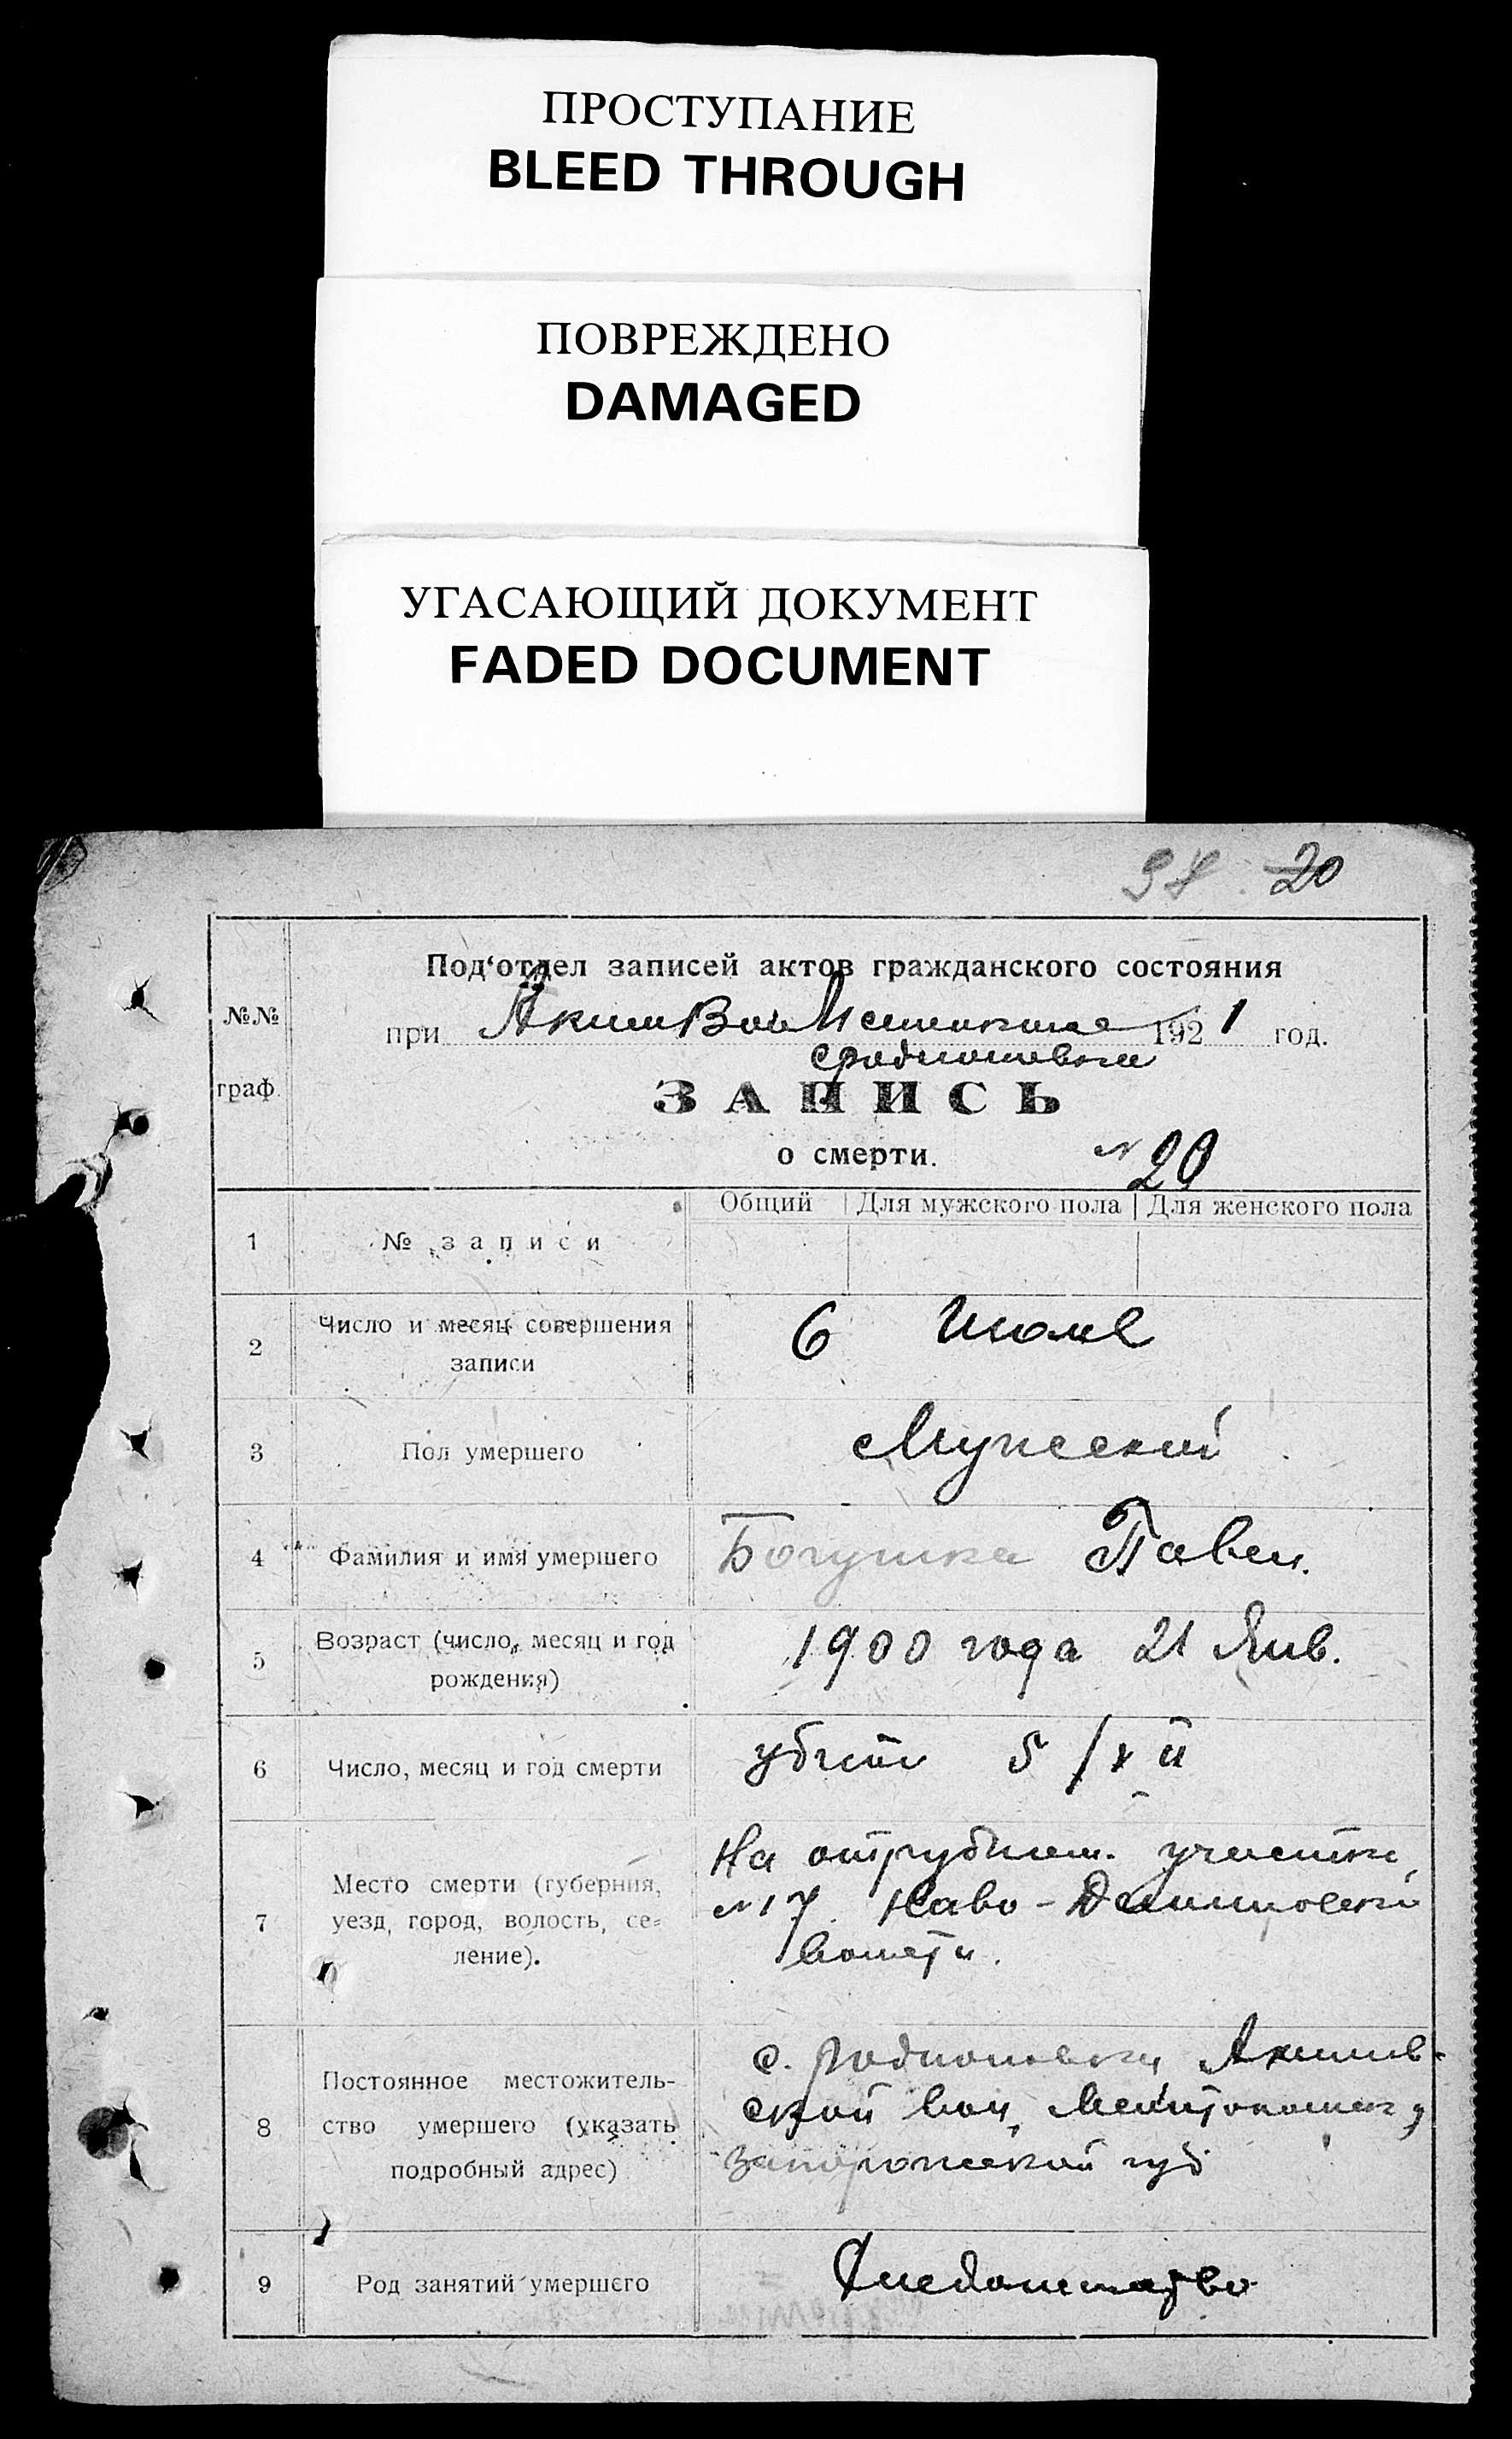 ПРОСТУПАНИЕ
BLEED THROUGH
ПОВРЕЖДЕНО
DAMAGED
УГАСАЮЩИЙ ДОКУМЕНТ
FADED DOCUMENT
20
№№ граф.
Под‘отдел записей актов гражданского состояния
при 1921 год.
ЗАПИСЬ
о смерти. № 20
Общий Для мужского пола Для женского пола
1 № записи
2 Число и месяц совершения записи 6 Июля
3 Пол умершего Мужской
4 Фамилия и имя умершего Богушка Павел.
5 Возраст (число, месяц и год рождения) 1900 года 21 Янв.
6 Число, месяц и год смерти убит 5
7 Место смерти (губерния, На отрубном. участке
уезд, город, волость, се- № 17 Ново-
ление). волости.
8 Постоянное местожитель- с. Родионовки Акимов-
ство умершего (указать ской вол, Мелитопольск у
подробный адрес) Запорожской губ
9 Род занятий умершего